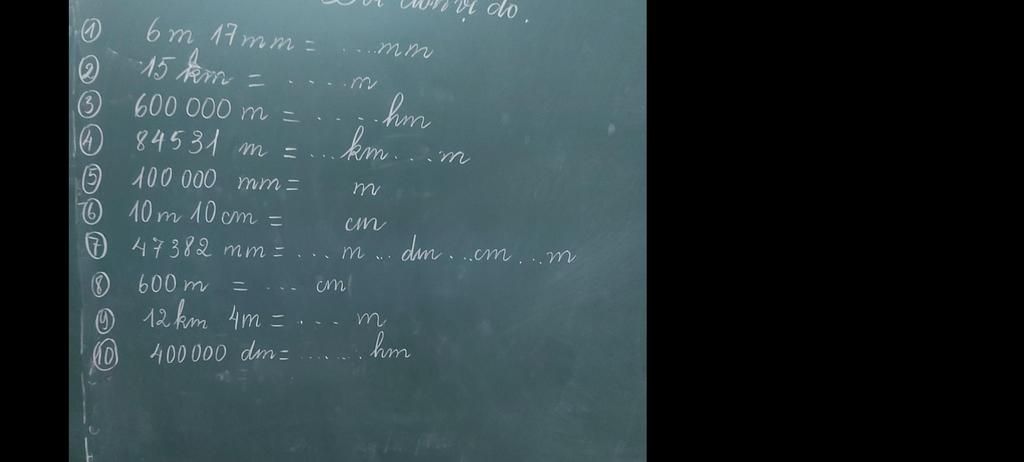 Đổi đơn vị đo.
① 6m 17mm = ....mm
② 15 km = ..... m
③ 600 000 m = .....hm
④ 84531 m = ...km...m
⑤ 100 000 mm = m
⑥ 10m 10cm = cm
⑦ 47382 mm = ... m .. dm ...cm ...m
⑧ 600m = ... cm
⑨ 12km 4m = .... m
⑩ 400000 dm = ...... hm